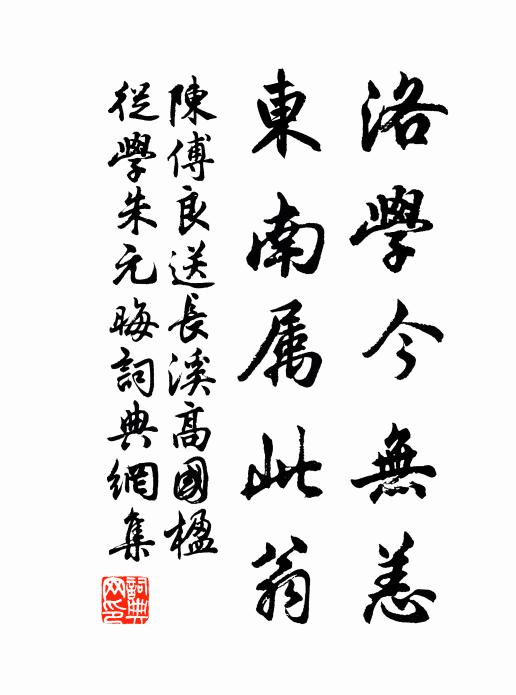 洛學今無恙
東南属此翁
陳傅良送長溪高國楹
從學朱元晦詞典網集
詞典網印